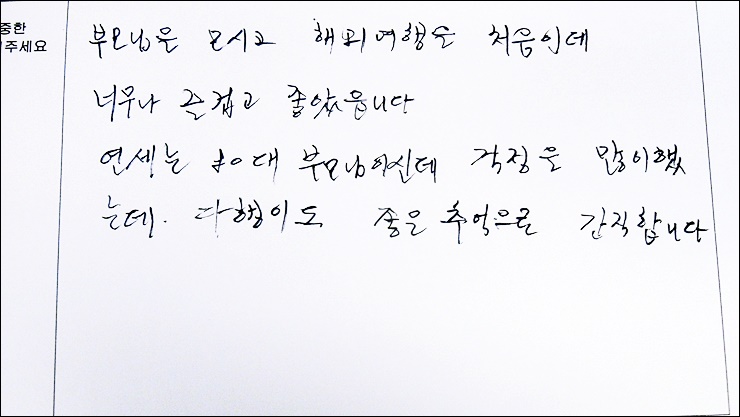 중한
주세요
부모님을 모시고 해외여행은 처음인데
너무나 즐겁고 좋았읍니다
연세는 80대 부모님이신데 걱정을 많이했
는데. 다행이도 좋은 추억으로 간직합니다